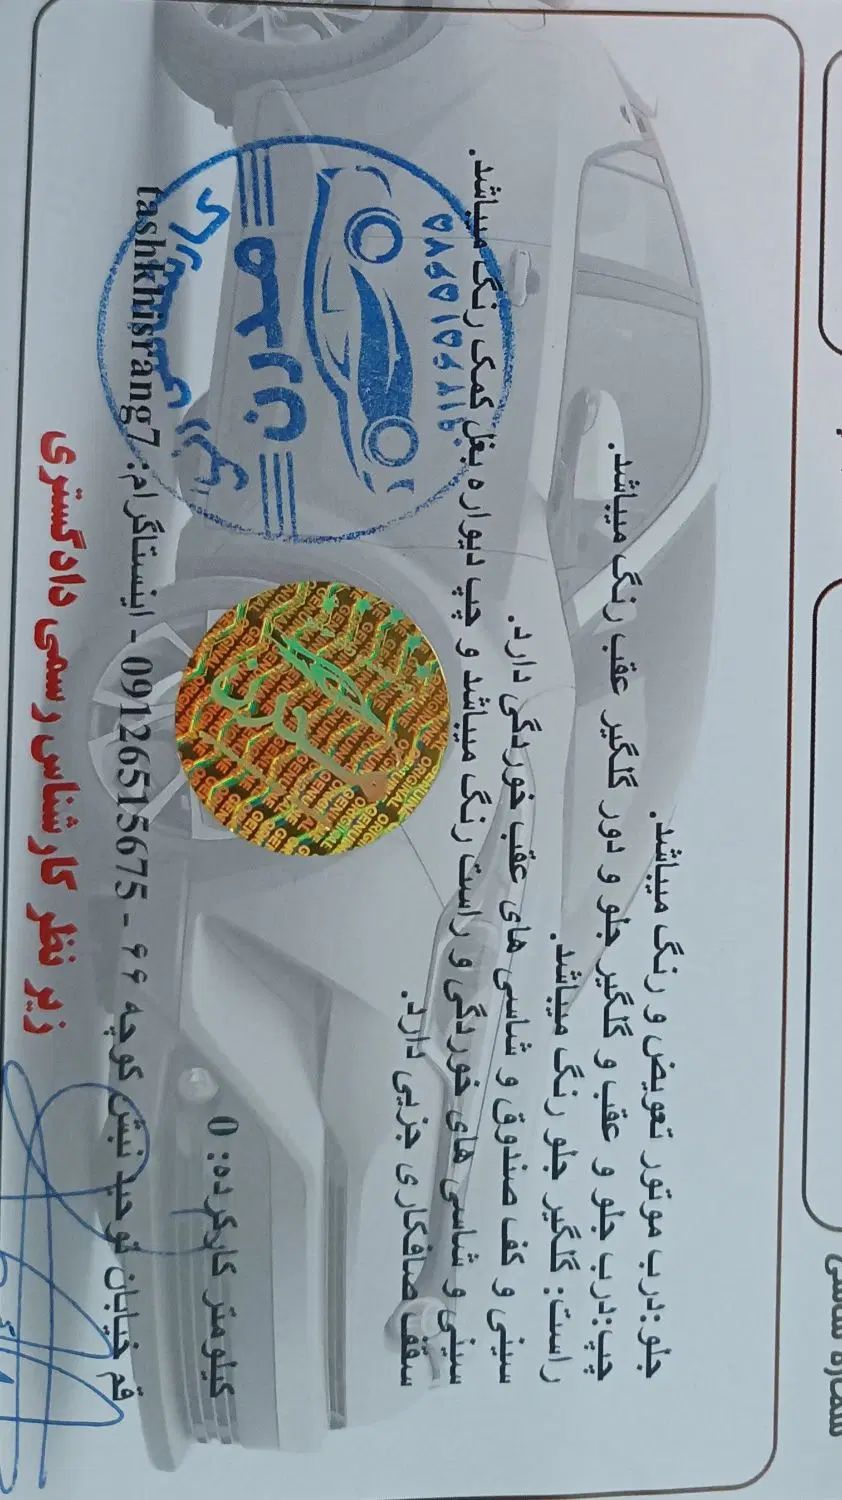 جلو:درب موتور تعویض و رنگ میباشد.
چپ:درب جلو و عقب و گلگیر جلو و دور گلگیر عقب رنگ میباشد.
راست: گلگیر جلو رنگ میباشد.
سینی و کف صندوق و شاسی های عقب خوردگی دارد.
سینی و شاسی های خوردگی و راست رنگ میباشد و چپ دیواره بغل کمک رنگ میباشد.
سقف صافکاری جزیی دارد.
کیلومتر کارکرده: 0
قم خیابان توحید نبش کوچه ۶۶ - 09126515675 - اینستاگرام: tashkhisrang7
زیر نظر کارشناس رسمی دادگستری
شماره شاسی
ORIGINAL
GENUINE